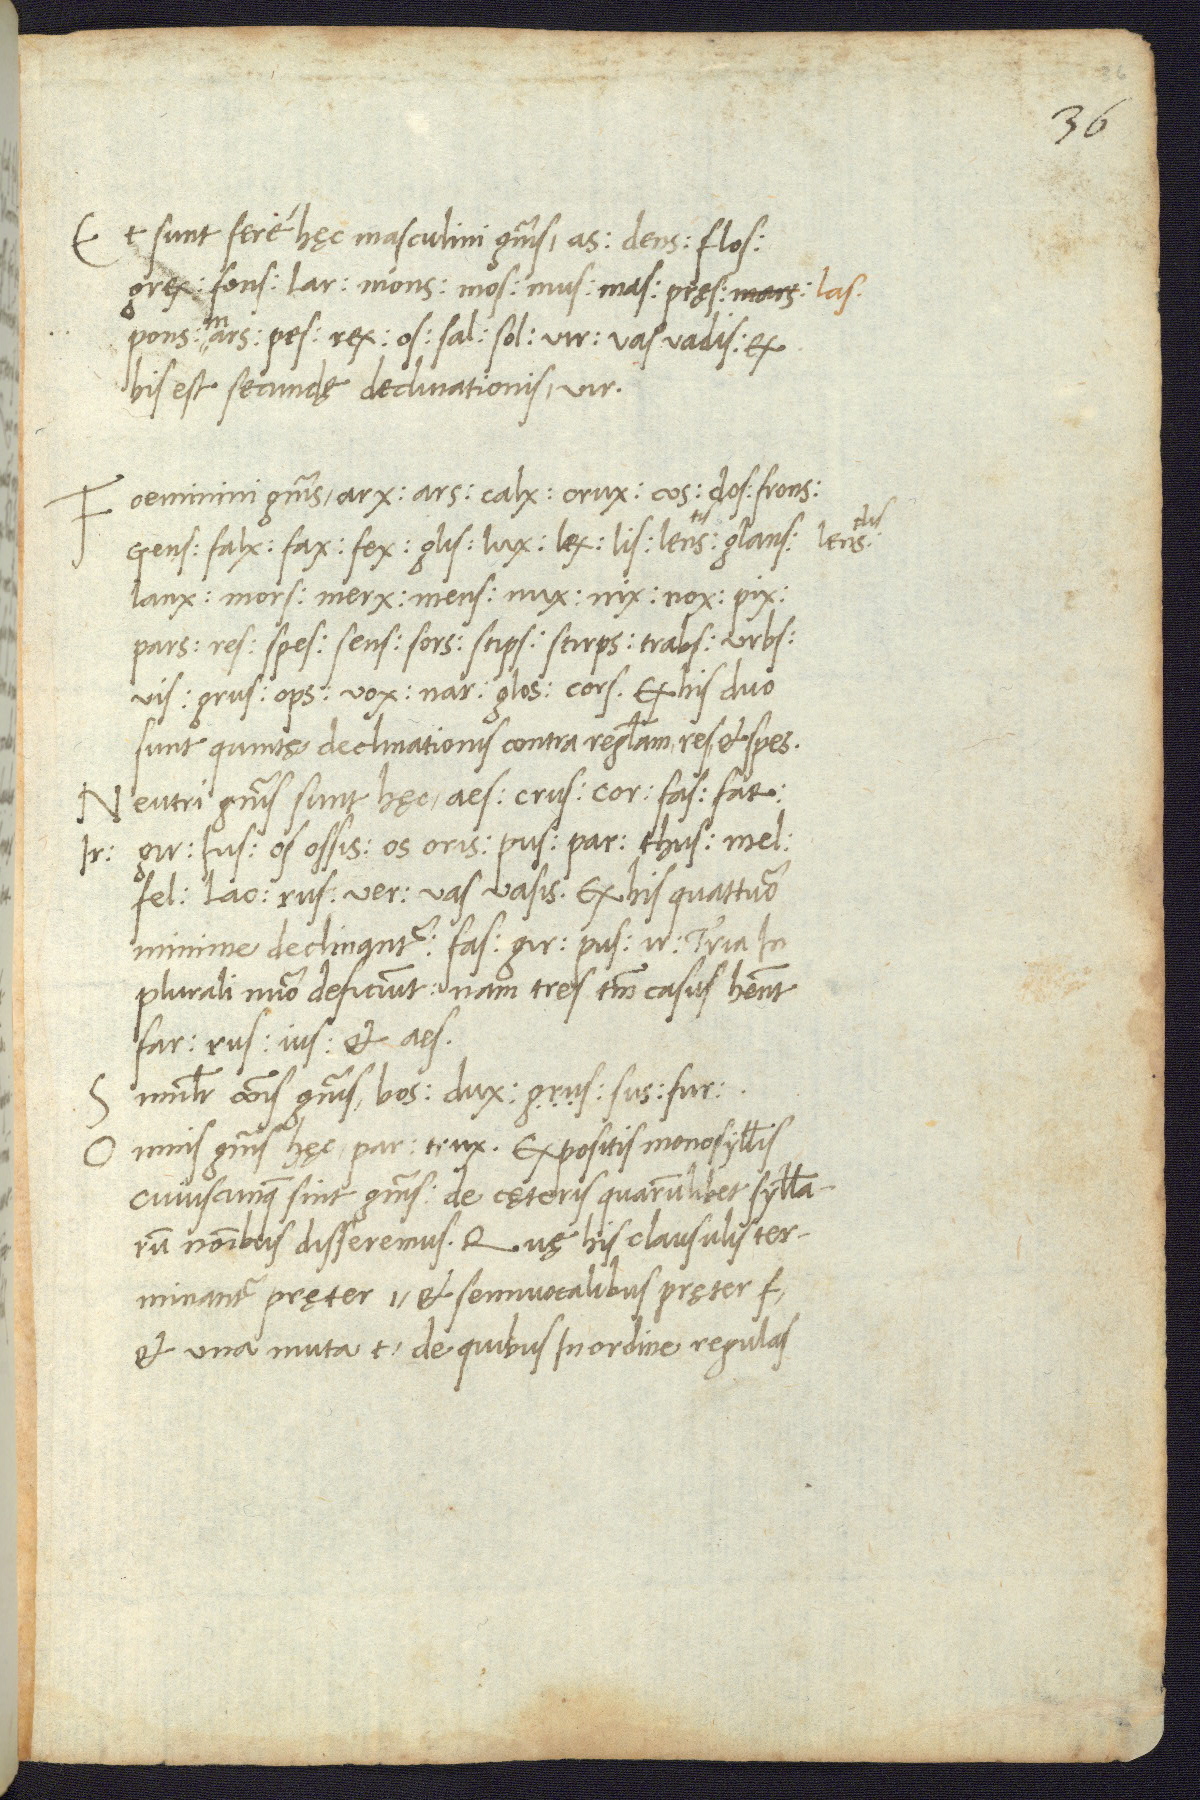 36
36
Et sunt ferè hęc masculini gn̄is, as: dens: flos:
grex: fons: lar: mons: mos: mus: mas: pręs: mars: las.
pons: mars: pes: rex: os: sal: sol: vir: vas vadis: Ex
his est secundę declinationis, vir.
Foeminini gn̄is, arx: ars: calx: crux: cos: dos: frons:
Gens: falx: fax: fex: glis: lux: lex: lis: lens tis: glans: lens dis:
lanx: mors: merx: mens: nux: nix: nox: pix:
pars: res: spes: sens: sors: stips: stirps: trabs: vrbs:
vis: grus: ops: vox: nar: glos: cors. Ex his duo
sunt quintę declinationis contra regl̄am, res, & spes.
Neutri gn̄is sunt hęc, aes: crus: cor: fas: far:
Ir: gir: Ius: os ossis: os oris: pus: par: thus: mel:
fel: Lac: rus: ver: vas vasis. Ex his quattuor̄
minime declinant᷑: fas: gir: pus: ir: Tria In
plurali nūo deficiūt: nam tres tm̄ casus hēnt
far: rus: ius: & aes.
Simil̄r cōis gn̄is, bos: dux: grus: sus: fur:
Omnis gn̄is hęc, par: trux. Expositis monosyll̄is
cuiuscunq̄ sint gn̄is: de cęteris quarūlibet syll̄a-
rū nōībus disseremus. Quę his clausulis ter-
minant᷑ pręter i, & semiuocalibus pręter f,
& vna muta t, de quibus In ordine regulas